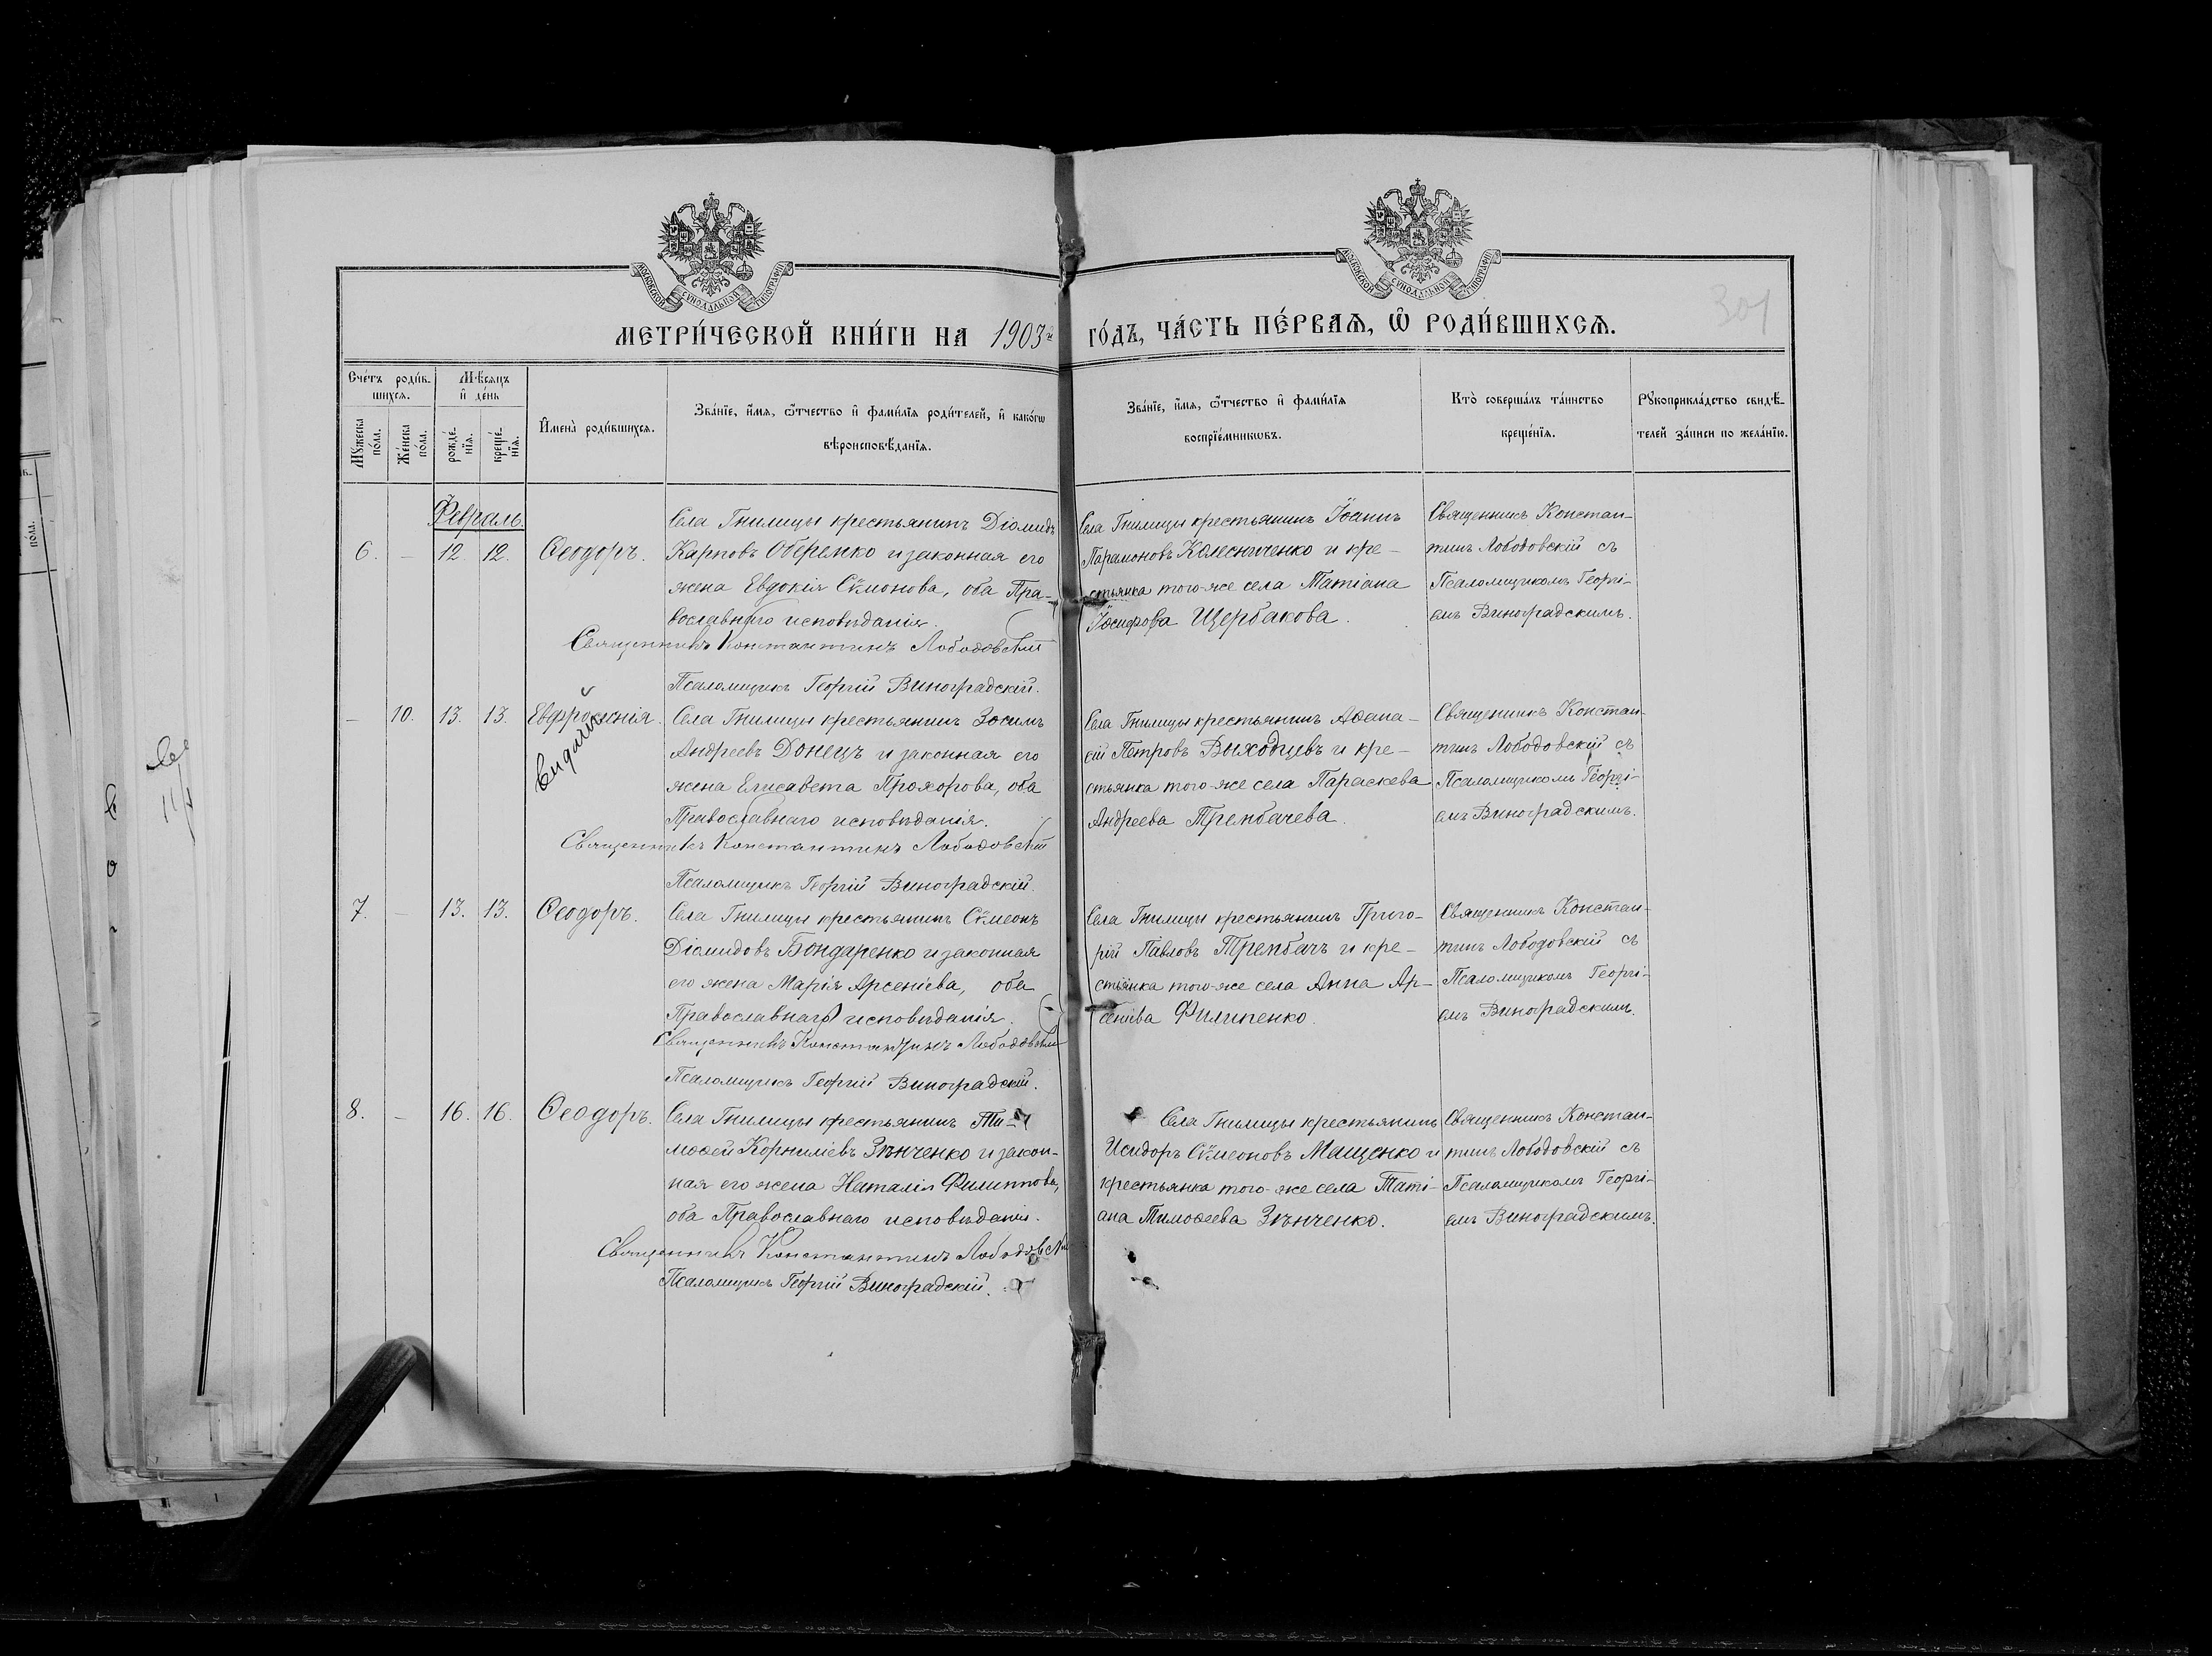 МОСКОВСКОЙ СѴНОДАЛЬНОЙ ТИПОГРАФІИ
МОСКОВСКОЙ СѴНОДАЛЬНОЙ ТИПОГРАФІИ
МЕТРИ́ЧЕСКОЙ КНИ́ГИ НА 1903й ГО́ДЪ, ЧА́СТЬ ПЕ́РВАѦ, Ѽ РОДИ́ВШИХСѦ.
Сче́тъ роди́в-
шихсѧ.
Мꙋ́жеска по́ла.
Же́нска по́ла.
Мѣ́сѧцъ
и҆ де́нь
рожде́-нїѧ.
креще́-нїѧ.
И҆мена̀ роди́вшихсѧ.
Зва́нїе, и҆́мѧ, ѻ҆́тчество и҆ фами́лїѧ роди́телей, и҆ како́гѡ
вѣроисповѣ́данїѧ.
Зва́нїе, и҆́мѧ, ѻ҆́тчество и҆ фами́лїѧ
воспрїе́мникѡвъ.
Кто̀ соверша́лъ та́инство
креще́нїѧ.
Рꙋкоприкла́дство свидѣ́-
телей за́писи по жела́нїю.
Февраль.
6. – 12. 12. Ѳеодоръ.
Села Гнилицы крестьянинъ Діомидъ
Карповъ Оберемко и законная его
жена Евдокія Сѷмеонова, оба Пра-
вославнаго исповѣданія.
Священникъ Константинъ Лободовскій
Псаломщикъ Георгій Виноградскій.
Села Гнилицы крестьянинъ Іоаннъ
Парамоновъ Колесниченко и кре-
стьянка того-же села Татіана
Іосифова Щербакова.
Священникъ Констан-
тинъ Лободовскій съ
Псаломщикомъ Георгі-
емъ Виноградскимъ.
– 10. 13. 13. Евфросинія.
Села Гнилицы крестьянинъ Зосимъ
Андреевъ Донецъ и законная его
жена Елисавета Прохорова, оба
Православнаго исповѣданія.
Священникъ Константинъ Лободовскій
Псаломщикъ Георгій Виноградскій.
Села Гнилицы крестьянинъ Аѳана-
сій Петровъ Выходцевъ и кре-
стьянка того-же села Параскева
Андреева Трембачева.
Священникъ Констан-
тинъ Лободовскій съ
Псаломщикомъ Георгі-
емъ Виноградскимъ.
7. – 13. 13. Ѳеодоръ.
Села Гнилицы крестьянинъ Сѷмеонъ
Діомидовъ Бондаренко и законная
его жена Марія Арсеніева, оба
Православнаго исповѣданія.
Священникъ Константинъ Лободовскій
Псаломщикъ Георгій Виноградскій.
Села Гнилицы крестьянинъ Григо-
рій Павловъ Трембачъ и кре-
стьянка того-же села Анна Ар-
сеніева Филипенко.
Священникъ Констан-
тинъ Лободовскій съ
Псаломщикомъ Георгі-
емъ Виноградскимъ.
8. – 16. 16. Ѳеодоръ.
Села Гнилицы крестьянинъ Ти-
моѳей Корниліевъ Зѣнченко и закон-
ная его жена Наталія Филиппова,
оба Православнаго исповѣданія.
Священникъ Константинъ Лободовскій
Псаломщикъ Георгій Виноградскій.
Села Гнилицы крестьянинъ
Исидоръ Сѷмеоновъ Мащенко и
крестьянка того-же села Таті-
ана Тимоѳеева Зѣнченко.
Священникъ Констан-
тинъ Лободовскій съ
Псаломщикомъ Георгі-
емъ Виноградскимъ.